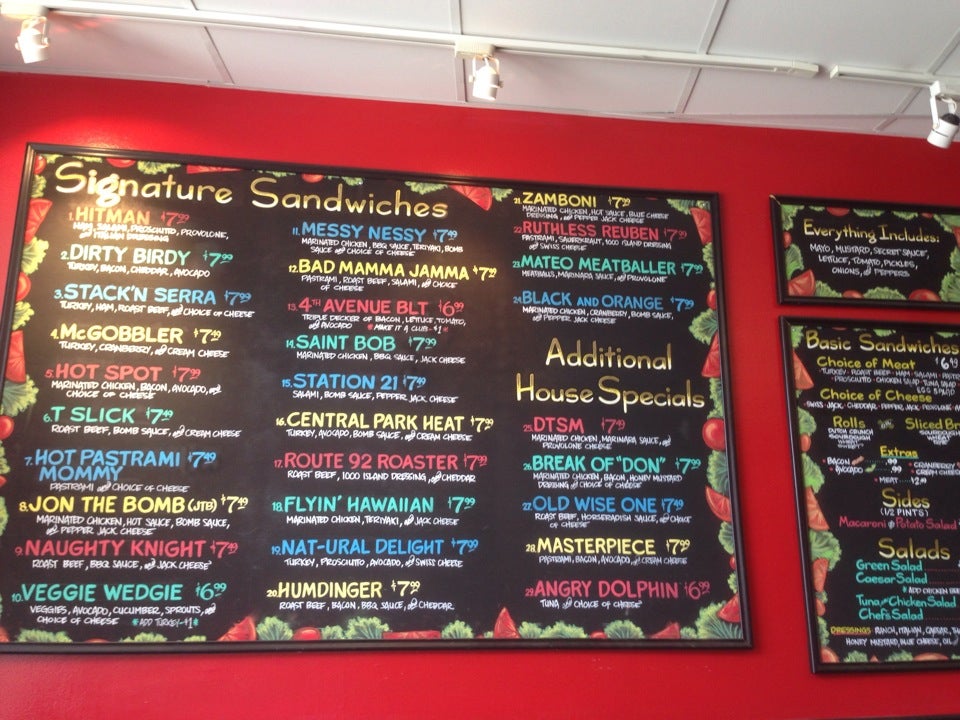 Signature Sandwiches
1. HITMAN $7.99
HAM, SALAMI, PROSCIUTTO, PROVOLONE,
AND ITALIAN DRESSING
2. DIRTY BIRDY $7.99
TURKEY, BACON, CHEDDAR, AVOCADO
3. STACK'N SERRA $7.99
TURKEY, HAM, ROAST BEEF, AND CHOICE OF CHEESE
4. McGOBBLER $7.49
TURKEY, CRANBERRY, AND CREAM CHEESE
5. HOT SPOT $7.99
MARINATED CHICKEN, BACON, AVOCADO, AND
CHOICE OF CHEESE
6. T SLICK $7.49
ROAST BEEF, BOMB SAUCE, AND CREAM CHEESE
7. HOT PASTRAMI $7.49
MOMMY
PASTRAMI AND CHOICE OF CHEESE
8. JON THE BOMB (JTB) $7.49
MARINATED CHICKEN, HOT SAUCE, BOMB SAUCE,
AND PEPPER JACK CHEESE
9. NAUGHTY KNIGHT $7.99
ROAST BEEF, BBQ SAUCE, AND JACK CHEESE
10. VEGGIE WEDGIE $6.99
VEGGIES, AVOCADO, CUCUMBER, SPROUTS, AND
CHOICE OF CHEESE *ADD TURKEY-$1*
11. MESSY NESSY $7.49
MARINATED CHICKEN, BBQ SAUCE, TERIYAKI, BOMB
SAUCE AND CHOICE OF CHEESE
12. BAD MAMMA JAMMA $7.99
PASTRAMI, ROAST BEEF, SALAMI, AND CHOICE
OF CHEESE
13. 4TH AVENUE BLT $6.99
TRIPLE DECKER OF BACON, LETTUCE, TOMATO,
AND AVOCADO *MAKE IT A CLUB-$1*
14. SAINT BOB $7.49
MARINATED CHICKEN, BBQ SAUCE, JACK CHEESE
15. STATION 21 $7.49
SALAMI, BOMB SAUCE, PEPPER JACK CHEESE
16. CENTRAL PARK HEAT $7.99
TURKEY, AVOCADO, BOMB SAUCE, AND CREAM CHEESE
17. ROUTE 92 ROASTER $7.99
ROAST BEEF, 1000 ISLAND DRESSING, AND CHEDDAR
18. FLYIN' HAWAIIAN $7.49
MARINATED CHICKEN, TERIYAKI, AND JACK CHEESE
19. NAT-URAL DELIGHT $7.99
TURKEY, PROSCIUTTO, AVOCADO, AND SWISS CHEESE
20. HUMDINGER $7.99
ROAST BEEF, BACON, BBQ SAUCE, AND CHEDDAR
21. ZAMBONI $7.99
MARINATED CHICKEN, HOT SAUCE, BLUE CHEESE
DRESSING, AND PEPPER JACK CHEESE
22. RUTHLESS REUBEN $7.99
PASTRAMI, SAUERKRAUT, 1000 ISLAND DRESSING
AND SWISS CHEESE
23. MATEO MEATBALLER $7.49
MEATBALLS, MARINARA SAUCE, AND PROVOLONE
24. BLACK AND ORANGE $7.99
MARINATED CHICKEN, CRANBERRY, BOMB SAUCE,
AND PEPPER JACK CHEESE
Additional
House Specials
25. DTSM $7.99
MARINATED CHICKEN, MARINARA SAUCE, AND
PROVOLONE CHEESE
26. BREAK OF "DON" $7.99
MARINATED CHICKEN, BACON, HONEY MUSTARD
DRESSING AND CHOICE OF CHEESE
27. OLD WISE ONE $7.49
ROAST BEEF, HORSERADISH SAUCE, AND CHOICE
OF CHEESE
28. MASTERPIECE $7.99
PASTRAMI, BACON, AVOCADO, AND CREAM CHEESE
29. ANGRY DOLPHIN $6.99
TUNA AND CHOICE OF CHEESE
Everything Includes:
MAYO, MUSTARD, SECRET SAUCE,
LETTUCE, TOMATO, PICKLES,
ONIONS, AND PEPPERS
Basic Sandwiches
Choice of Meat
TURKEY ROAST BEEF HAM SALAMI
PROSCIUTTO CHICKEN SALAD TUNA SALAD
EGG SALAD
Choice of Cheese
SWISS JACK CHEDDAR PEPPER JACK PROVOLONE
Rolls Sliced
DUTCH CRUNCH
SOURDOUGH
WHEAT
SWEET
Extras
BACON .99 CRANBERRY
AVOCADO .99 CREAM CHEESE
MEAT $2.49
Sides
(1/2 PINTS)
Macaroni Potato Salad
Salads
Green Salad
Caesar Salad
*ADD CHICKEN
Tuna Chicken Salad
Chef's Salad
DRESSINGS RANCH, ITALIAN, CAESAR,
HONEY MUSTARD, BLUE CHEESE, OIL